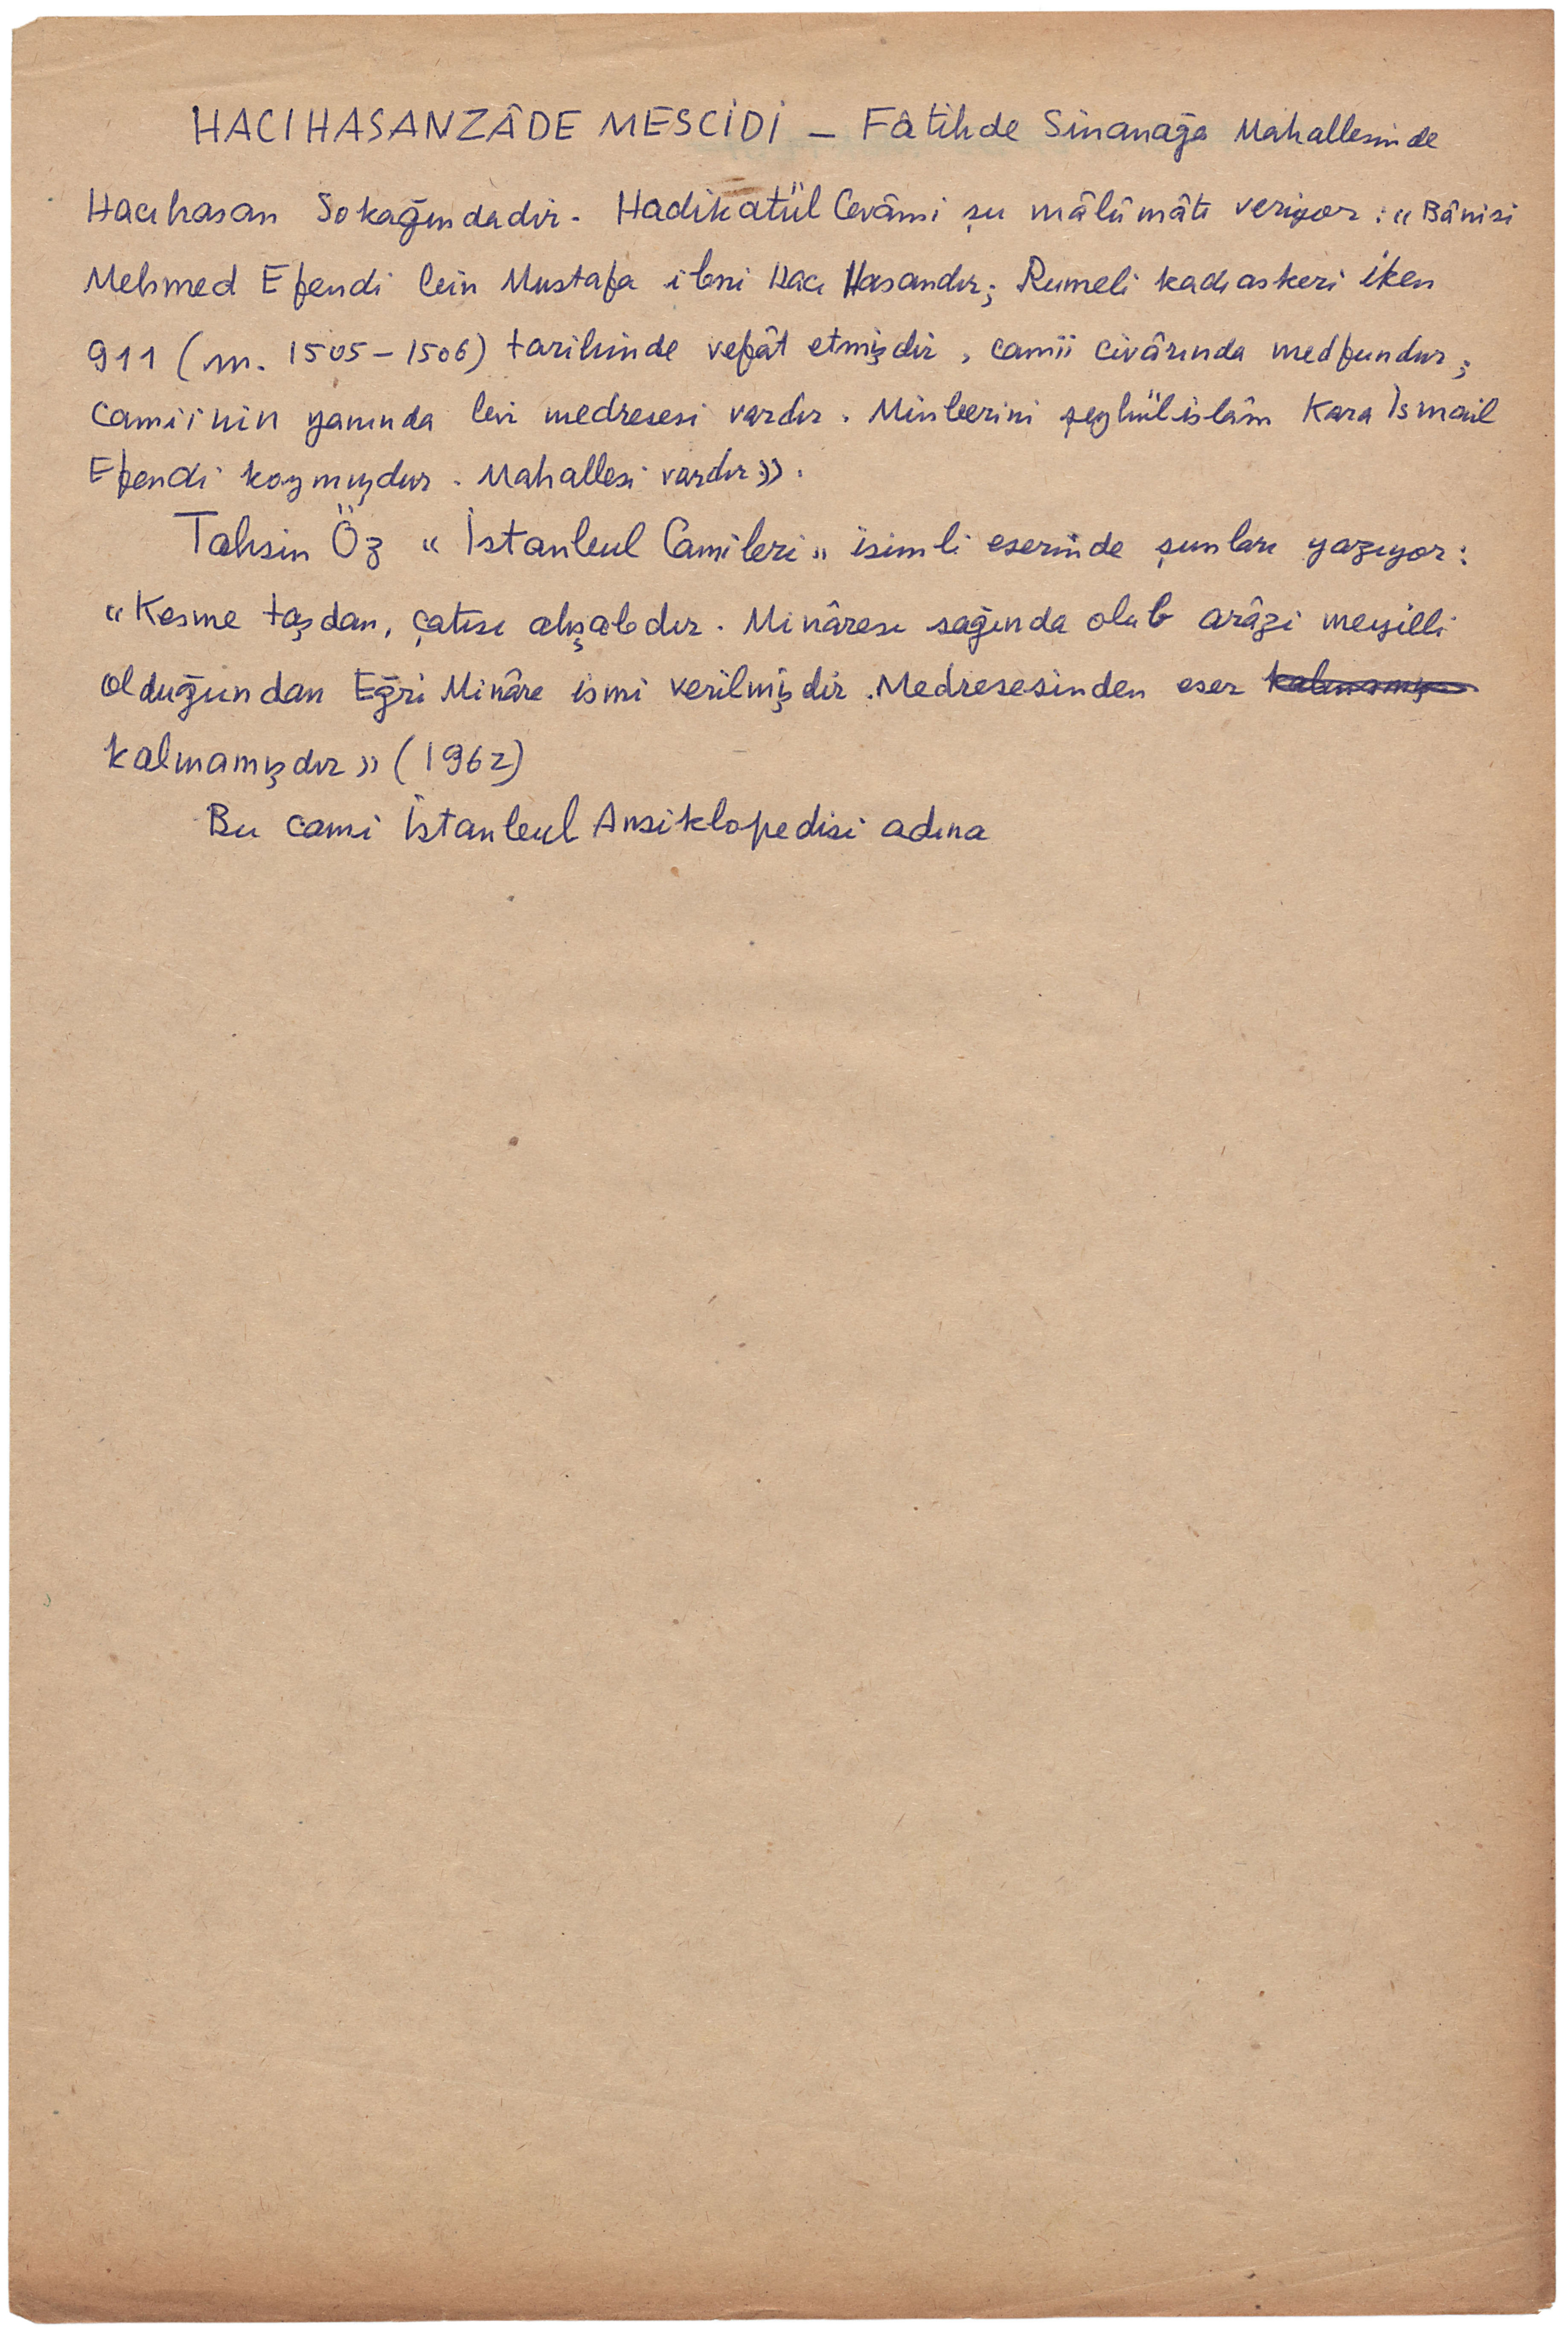 HACIHASANZÂDE MESCİDİ – Fâtihde Sinanağa Mahallesinde
Hacıhasan Sokağındadır. Hadikatül Cevâmi şu mâlûmâtı veriyor : « Bânisi
Mehmed Efendi bin Mustafa ibni Hacı Hasandır; Rumeli kadıaskeri iken
911 (m. 1505–1506) tarihinde vefât etmişdir, camii civârında medfundur;
Camiinin yanında bir medresesi vardır. Minberini şeyhülislâm Kara İsmail
Efendi koymuşdur. Mahallesi vardır».
Tahsin Öz « İstanbul Camileri » isimli eserinde şunları yazıyor:
« Kesme taşdan, çatısı ahşabdır. Minâresi sağında olub arâzi meyilli
olduğundan Eğri Minâre ismi verilmişdir. Medresesinden eser kalmamış
kalmamışdır » (1962)
Bu cami İstanbul Ansiklopedisi adına